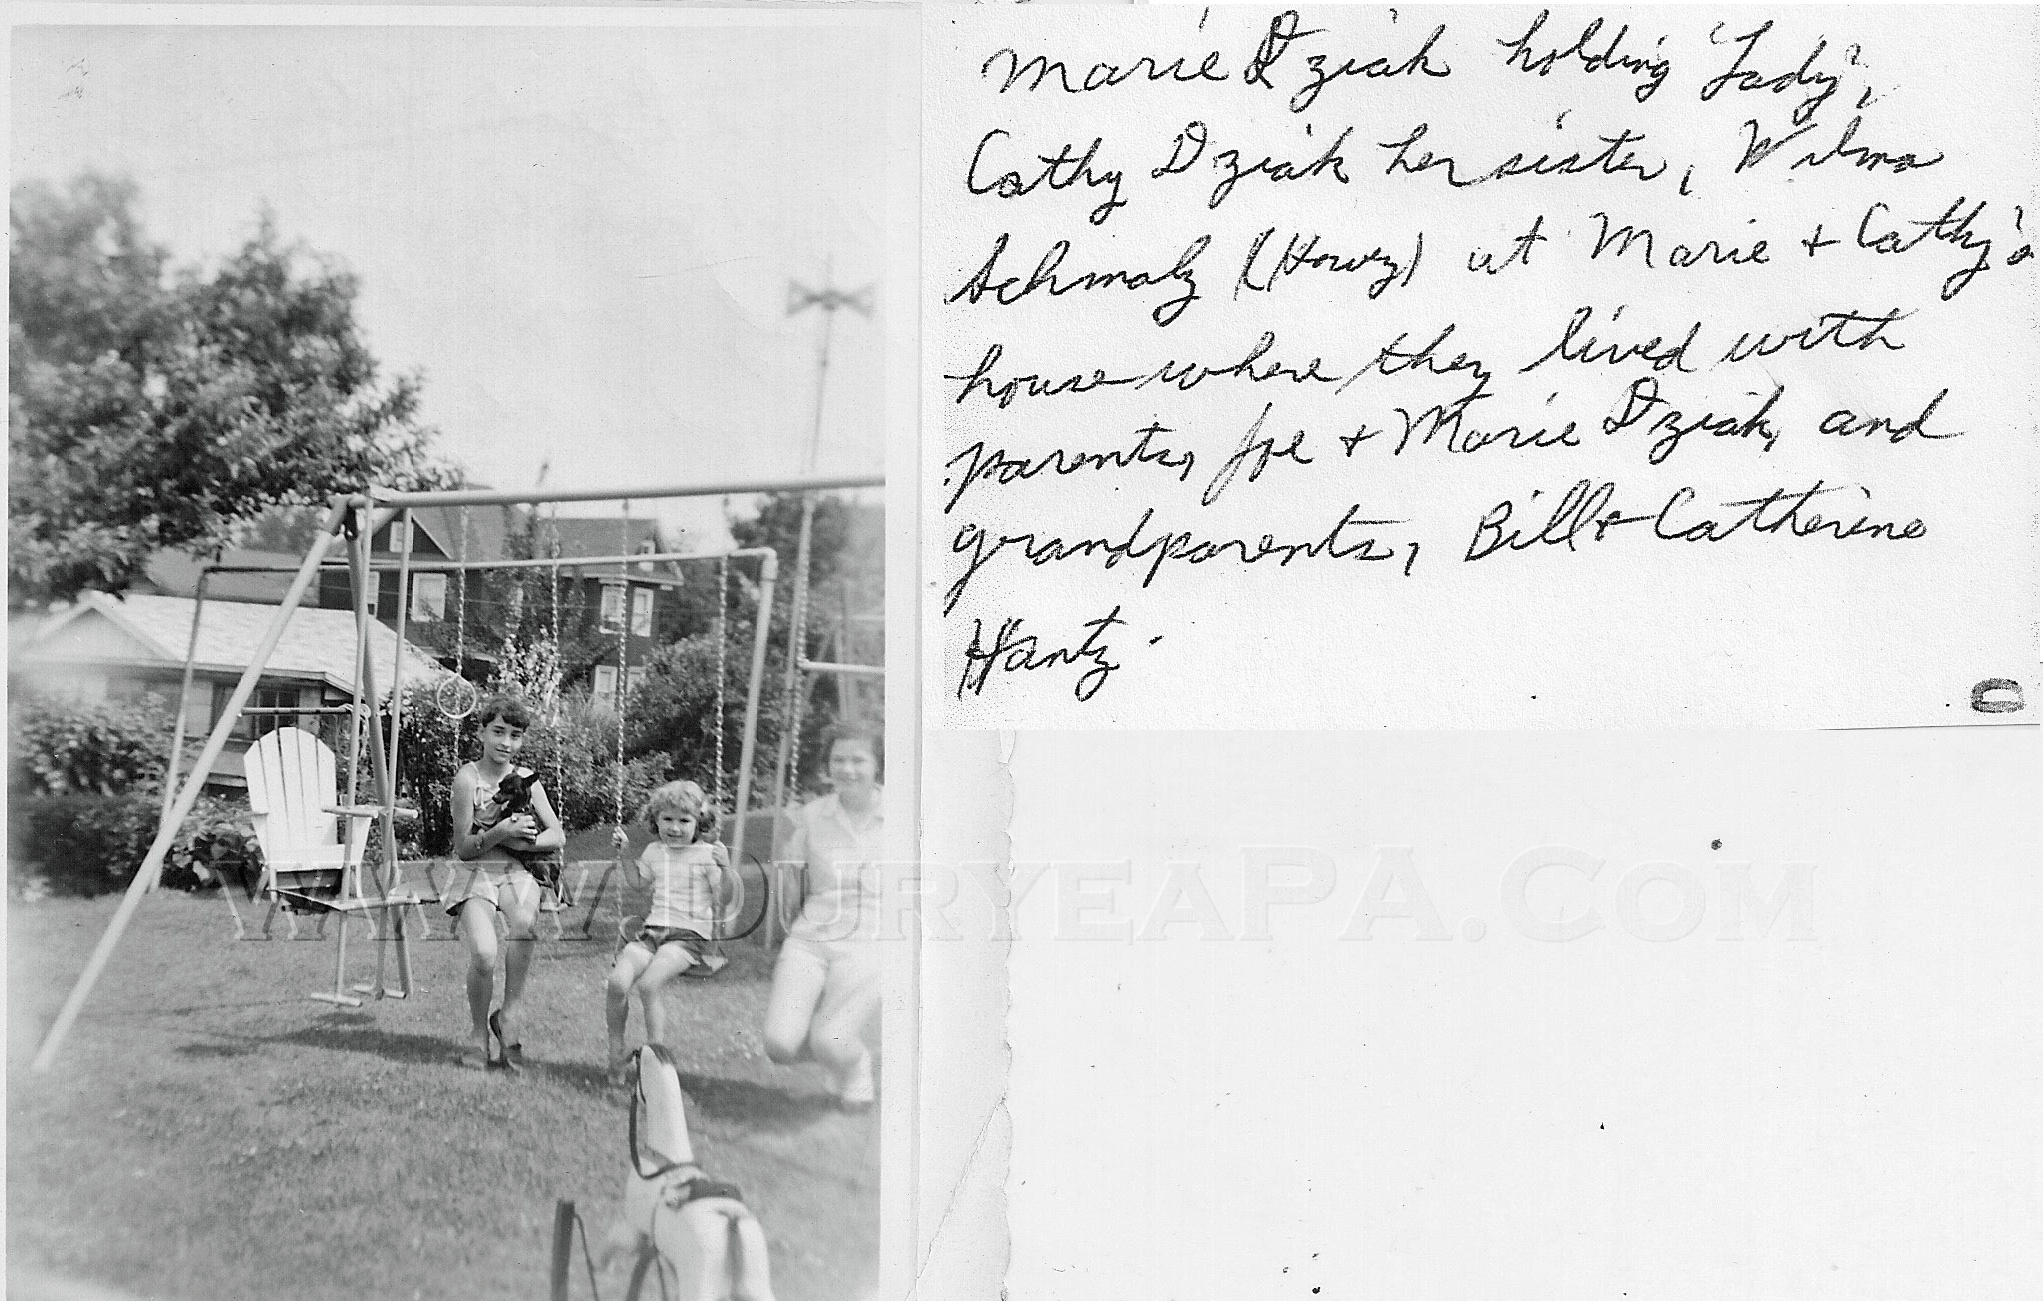 Marie Dziak holding "Lady",
Cathy Dziak her sister, Wilma
Schmalz (Howz) at Marie + Cathy's
house where they lived with
parents, Joe + Marie Dziak, and
grandparents, Bill + Catherine
Hantz.
www.DuryeaPA.Com